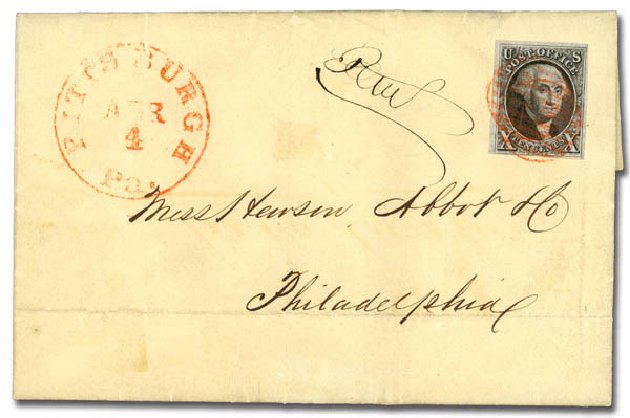 PITTSBURGH
APR
4
Pa.
U S
POST OFFICE
X TEN CENTS X
Mess Hewson Abbot & Co
Philadelphia